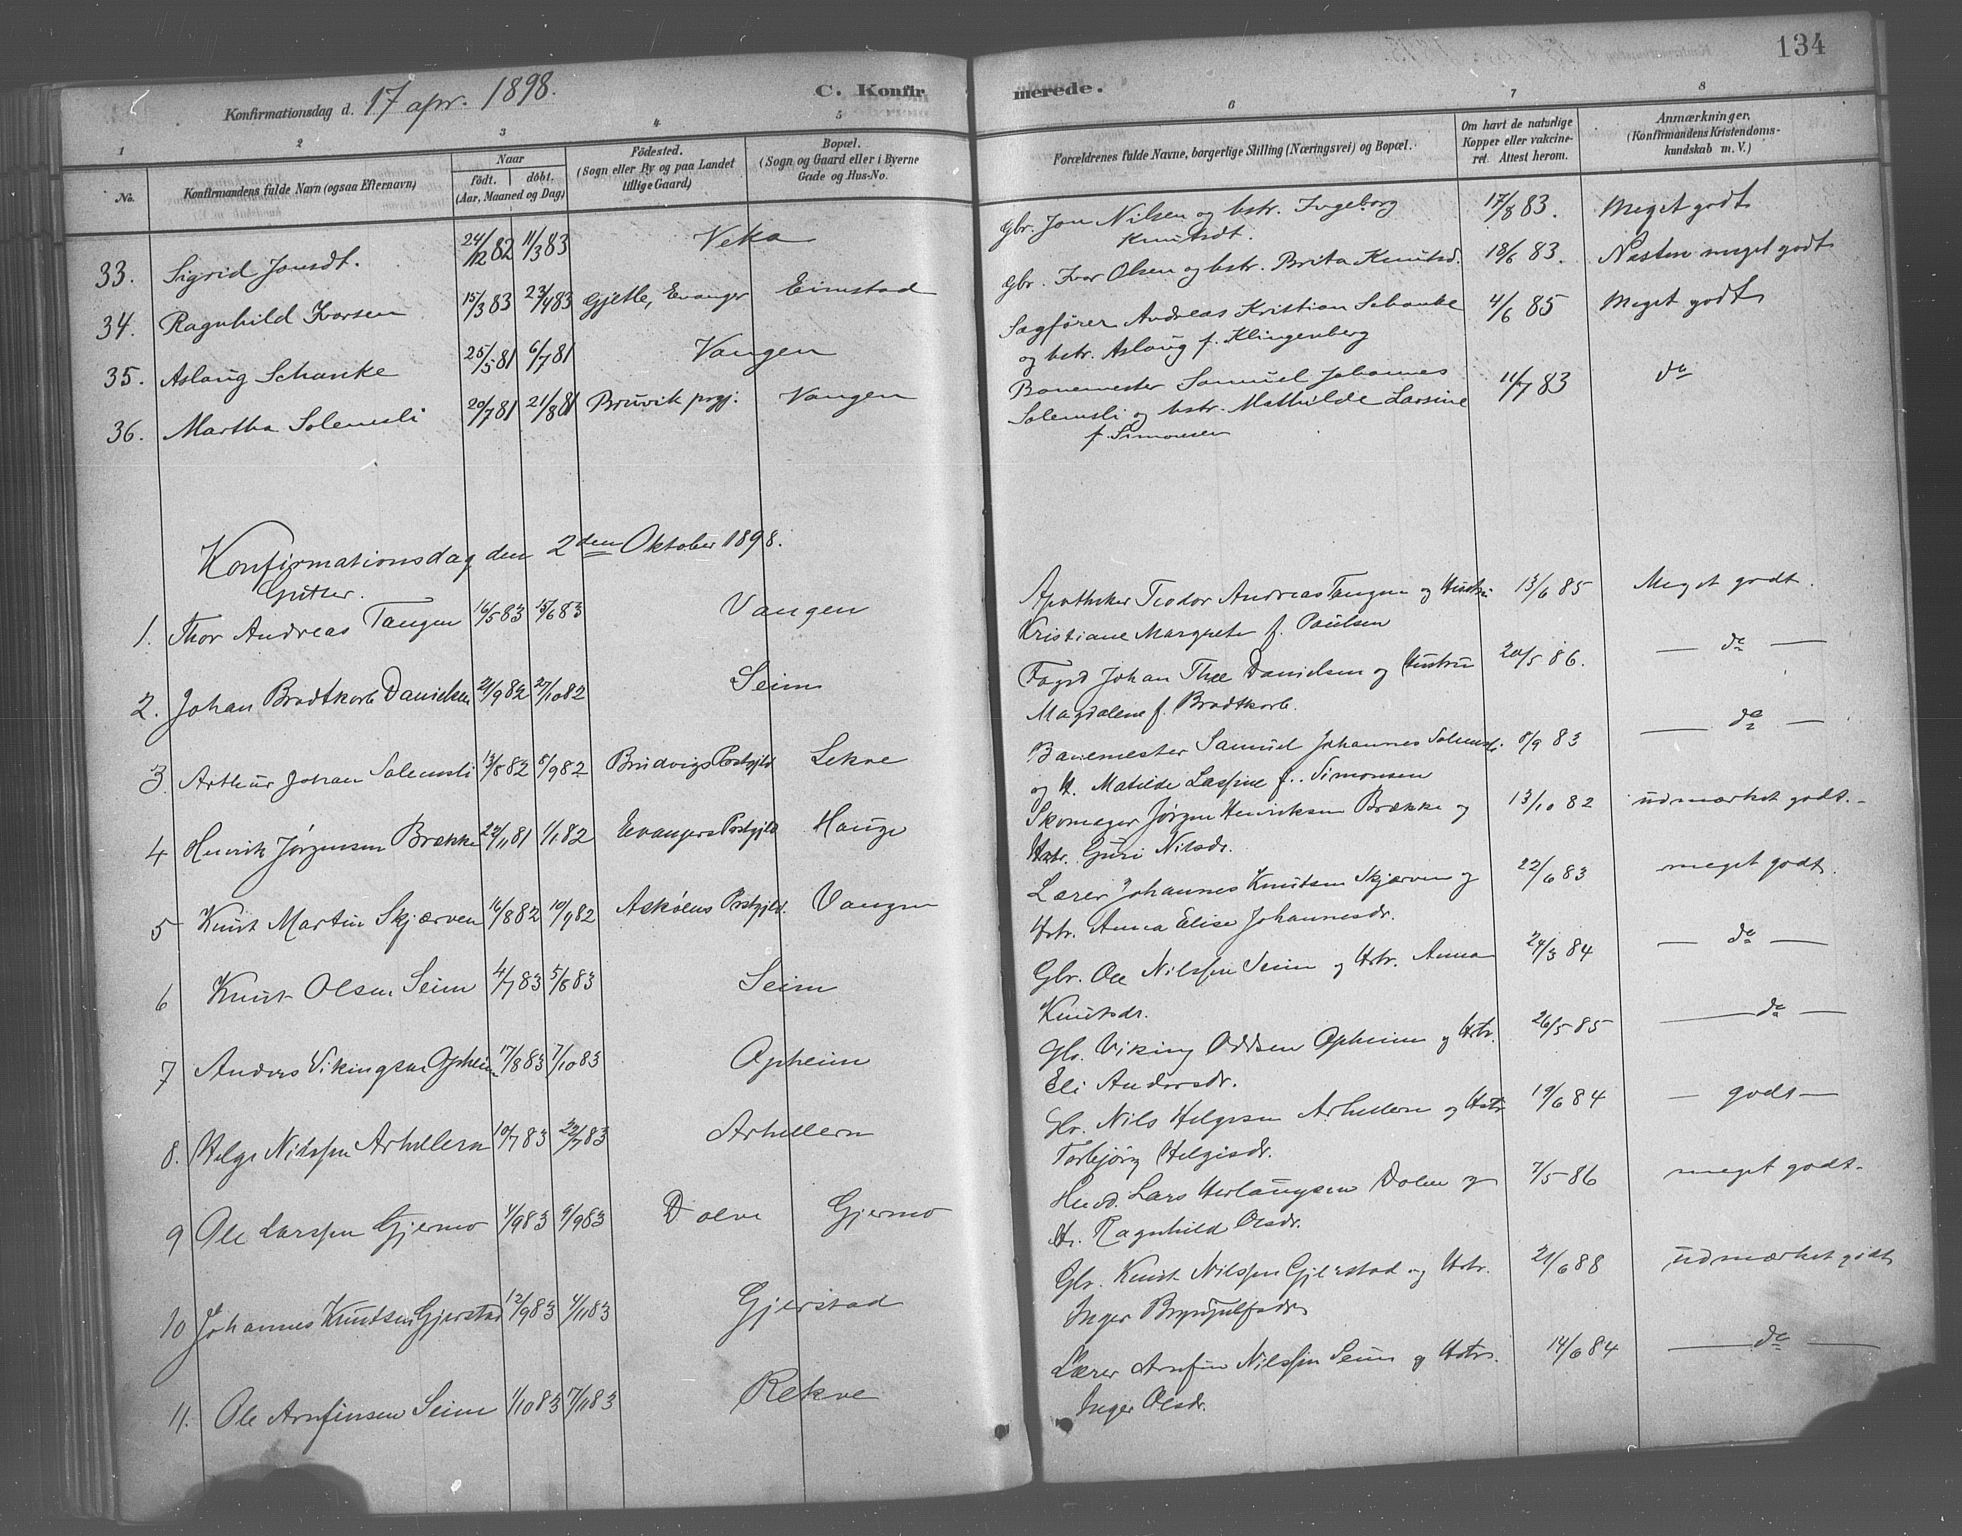 134
Konfirmationsdag d. 17 apr. 1898.
C. Konfirmerede.
1 2 3 4 5 6 7 8
No.
Konfirmandens fulde Navn (ogsaa Efternavn)
Naar
født. døbt.
(Aar, Maaned og Dag)
Fødested.
(Sogn eller By og paa Landet
tillige Gaard)
Bopæl.
(Sogn og Gaard eller i Byerne
Gade og Hus-No.
Forældrenes fulde Navne, borgerlige Stilling (Næringsvei) og Bopæl.
Om havt de naturlige
Kopper eller vakcine-
ret. Attest herom.
Anmærkninger,
(Konfirmandens Kristendoms-
kundskab m. V.)
33. Sigrid Jonsdt. 24/12 82 11/3 83 Veka Gbr. Jon Nilsen og hstr. Ingeborg 17/8 83. Meget godt
Knutsdt.
34. Ragnhild Ivarsen 15/3 83 23/4 83 Gjelle, Evanger Eimstad Gbr. Ivar Olsen og hstr. Brita Knutsd. 18/6 83. Næsten meget godt
35. Aslaug Schanke 25/5 81 6/7 81 Vangen Sagfører Andreas Kristian Schanke 4/6 85 Meget godt
og hstr. Aslaug f. Klingenberg
36. Martha Solemsli 20/7 81 21/8 81 Bruvik prgj. Vangen Banemester Samuel Johannes 11/7 83 do
Solemsli og hstr. Mathilde Larsine
f. Simonsen
Konfirmationsdag den 2den Oktober 1898.
Gutter.
1. Thor Andreas Tangen 16/5 83 15/6 83 Vangen Apotheker Teodor Andreas Tangen og Hustru 13/6 85 Meget godt.
Kristiane Margrete f. Paulsen
2. Johan Brodtkorb Danielsen 21/9 82 27/10 82 Seim Fogd Johan Thee Danielsen og Hustru 20/5 86. — do —
Magdalene f. Brodtkorb.
3. Arthur Johan Solemsli 13/8 82 5/9 82 Brudvigs Prstgjld Lekve Banemester Samuel Johannes Solemsli 8/9 83 — do —
og H. Matilde Lassine f. Simonsen
4 Henrik Jørgensen Brække 22/11 81 1/1 82 Evangers Prstgjld Hauge Skomager Jørgen Henriksen Brække og 13/10 82 udmærket godt.
Hstr. Guri Nilsdr.
5 Knut Martin Skjærven 16/8 82 10/9 82 Askøens Prstgjld. Vangen Lærer Johannes Knutsen Skjærven og 22/6 83 meget godt.
Hstr. Anna Elise Johannesdr.
6 Knut Olsen Seim 4/7 83 5/8 83 Seim Gbr. Ole Nilssen Seim og Hstr. Anna 24/3 84 — do —
Knutsdr.
7 Anders Vikingsen Opheim 17/8 83 7/10 83 Opheim Gbr. Viking Oddsen Opheim og Hstr. 26/5 85 — do —
Eli Andersdr.
8. Helge Nilssen Arhellern 10/7 83 22/7 83 Arhellern Gbr. Nils Helgesen Arhellern og Hstr 19/6 84 — godt —
Torbjørg Helgisdr.
9 Ole Larssen Gjermo 1/9 83 9/9 83 Dolve Gjermo Husd. Lars Herlaugsen Dolve og 7/5 86 meget godt.
H. Ragnhild Olsdr.
10 Johannes Knutsen Gjerstad 12/9 83 4/11 83 Gjerstad Gbr. Knut Nilssen Gjerstad og Hstr. 21/6 88 udmærket godt
Inger Brynjulfsdr
11. Ole Arnfinsen Seim 1/10 83 7/11 83 Rekve Lærer Arnfin Nilssen Seim og Hstr. 14/6 84 — do —
Inger Olsdr.